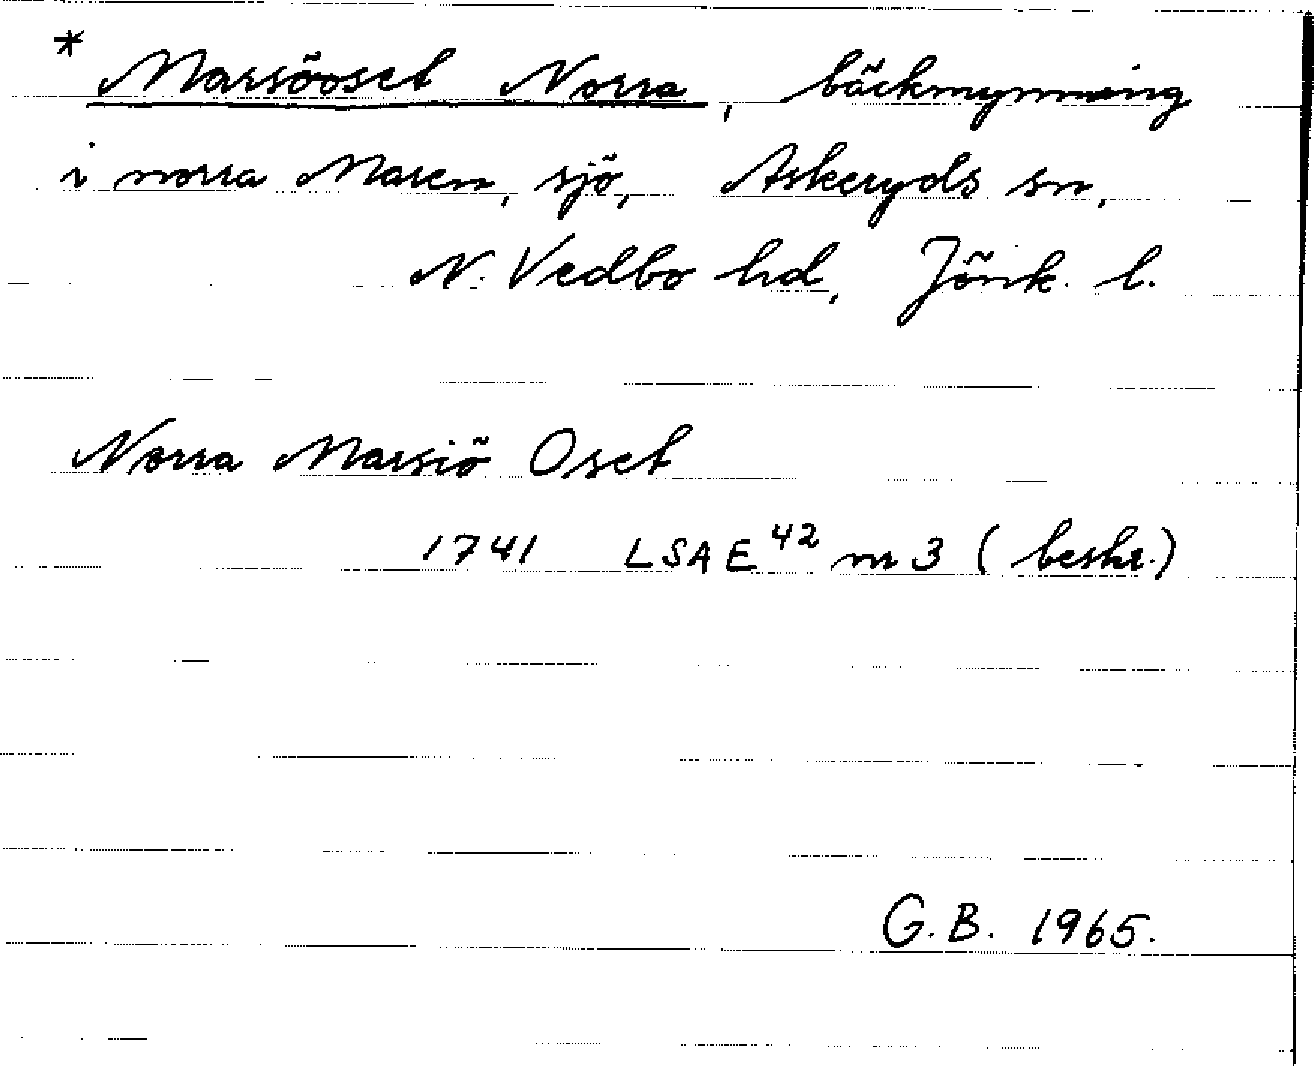 * Marsöoset Norra, bäckmynning
i norra Maren, sjö, Askeryds sn,
N. Vedbo hd, Jönk. l.
Norra Marsiö Oset
1741 LSA E 42 nr 3 (beskr.)
G.B. 1965.